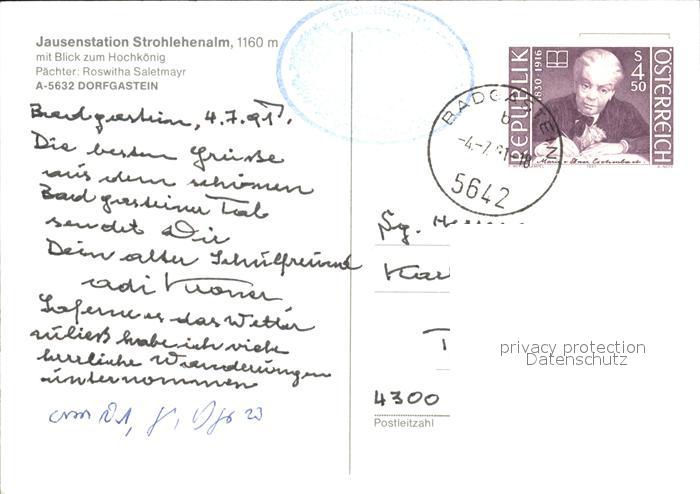 Jausenstation Strohlehenalm, 1160 m
mit Blick zum Hochkönig
Pächter: Roswitha Saletmayr
A-5632 DORFGASTEIN
Badgastein, 4.7.91.
Die besten Grüsse
aus dem schönen
Badgasteiner Tal
sendet Dir
Dein alter Schulfreund
Adi
Soferne es das Wetter
zuließ habe ich viele
herrliche Wanderungen
unternommen
REPUBLIK
ÖSTERREICH
1830-1916
S 4 50
BADGASTEIN
-4.-7.91-18
5642
Sg.
4300
Postleitzahl
privacy protection
Datenschutz